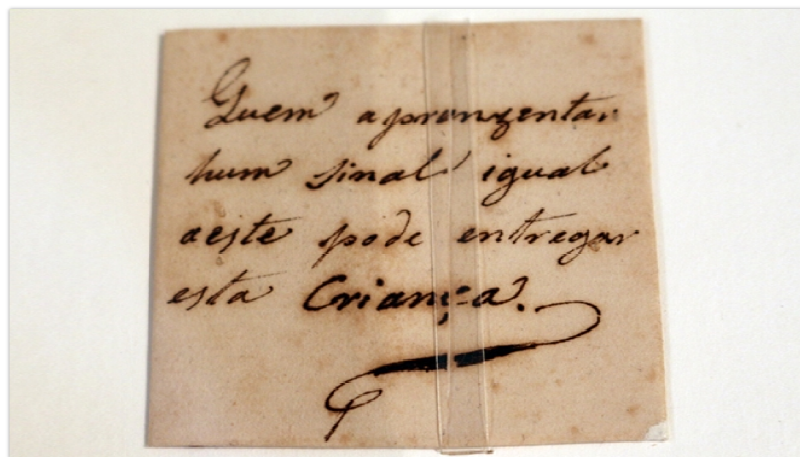 Quem apranzentar
hum sinal igual
aeste pode entregar
esta Criança.